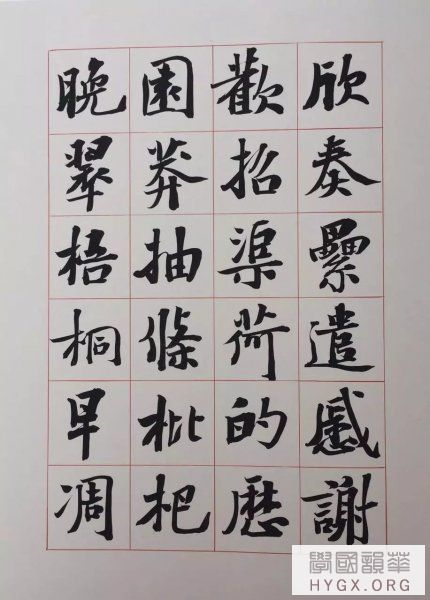 欣奏纍遣慼謝
歡招渠荷的歷
園莽抽條枇杷
晚翠梧桐早凋
學國韻華
HYGX.ORG